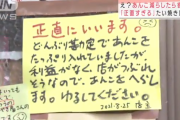 え？あんこ減らしたら
「正直すぎる」たい焼き
正直にいいます。
どんぶり勘定であんこを
たっぷり入れていましたが
利益がなく、店がつぶれ
そうなので、あんこをへらし
ます。ゆるしてください。
2021.8.25 店主